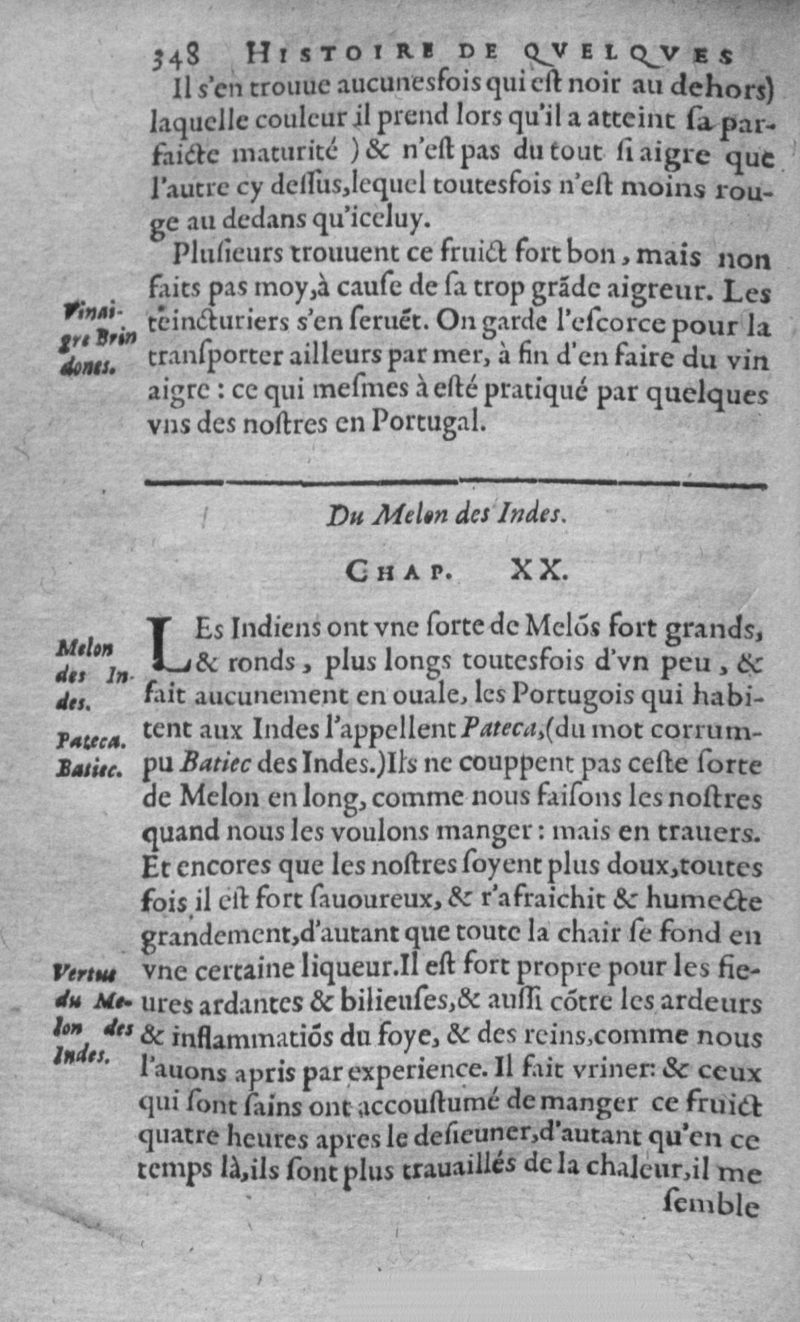 348 HISTOIRE DE QVELQVES
Il s'en trouue aucunesfois qui eſt noir au dehors)
laquelle couleur il prend lors qu'il a atteint ſa par-
faicte maturité ) & n'eſt pas du tout ſi aigre que
l'autre cy deſſus,lequel toutesfois n'eſt moins rou-
ge au dedans qu'iceluy.
Pluſieurs trouuent ce fruict fort bon, mais non
faits pas moy,à cauſe de ſa trop grãde aigreur. Les
teincturiers s'en ſeruẽt. On garde l'eſcorce pour la
Vinai-
gre Brin
dones.
tranſporter ailleurs par mer, à fin d'en faire du vin
aigre : ce qui meſmes à eſté pratiqué par quelques
vns des noſtres en Portugal.
Du Melon des Indes.
CHAP. XX.
LEs Indiens ont vne ſorte de Melõs fort grands,
& ronds, plus longs toutesfois d'vn peu, &
Melon
des In-
des.
fait aucunement en ouale, les Portugois qui habi-
tent aux Indes l'appellent Pateca,(du mot corrum-
Pateca.
Batiec.
pu Batiec des Indes.)Ils ne couppent pas ceſte ſorte
de Melon en long, comme nous faiſons les noſtres
quand nous les voulons manger : mais en trauers.
Et encores que les noſtres ſoyent plus doux,toutes
fois il eſt fort ſauoureux, & r'afraichit & humecte
grandement,d'autant que toute la chair ſe fond en
vne certaine liqueur.Il eſt fort propre pour les fie-
Vertus
du Me-
lon des
Indes.
ures ardantes & bilieuſes,& auſſi cõtre les ardeurs
& inflammatiõs du foye, & des reins,comme nous
l'auons apris par experience. Il fait vriner: & ceux
qui ſont ſains ont accouſtumé de manger ce fruict
quatre heures apres le deſieuner,d'autant qu'en ce
temps là,ils ſont plus trauaillés de la chaleur,il me
ſemble